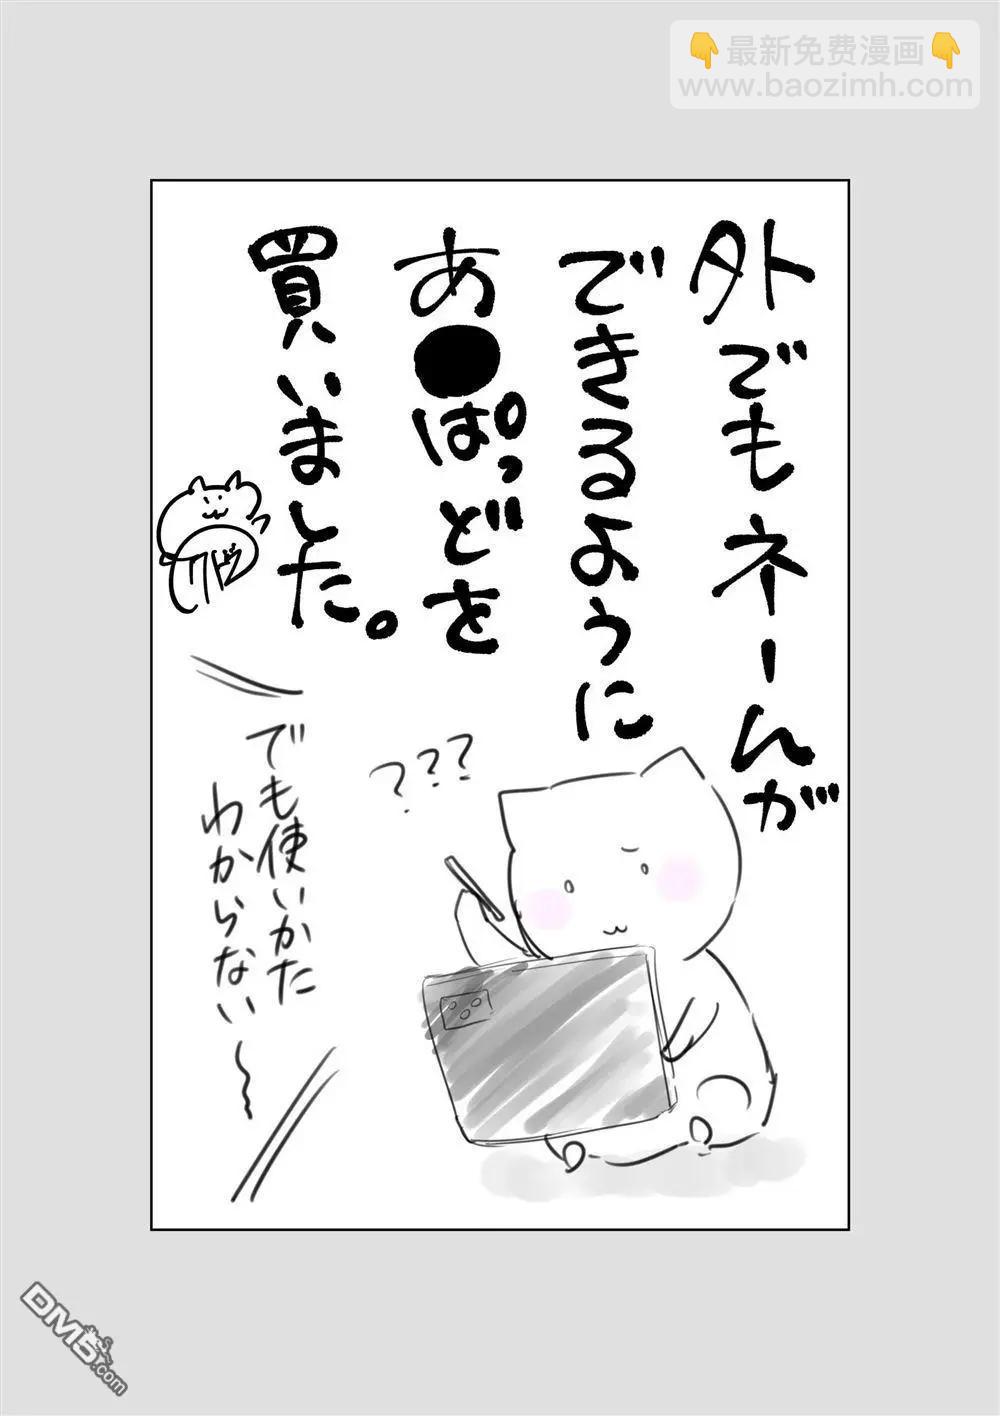 最新免费漫画
www.baozimh.com
外でもネームが
できるように
あ●ぱっどを
買いました。
???
でも使いかた
わからない〜
DM5.com